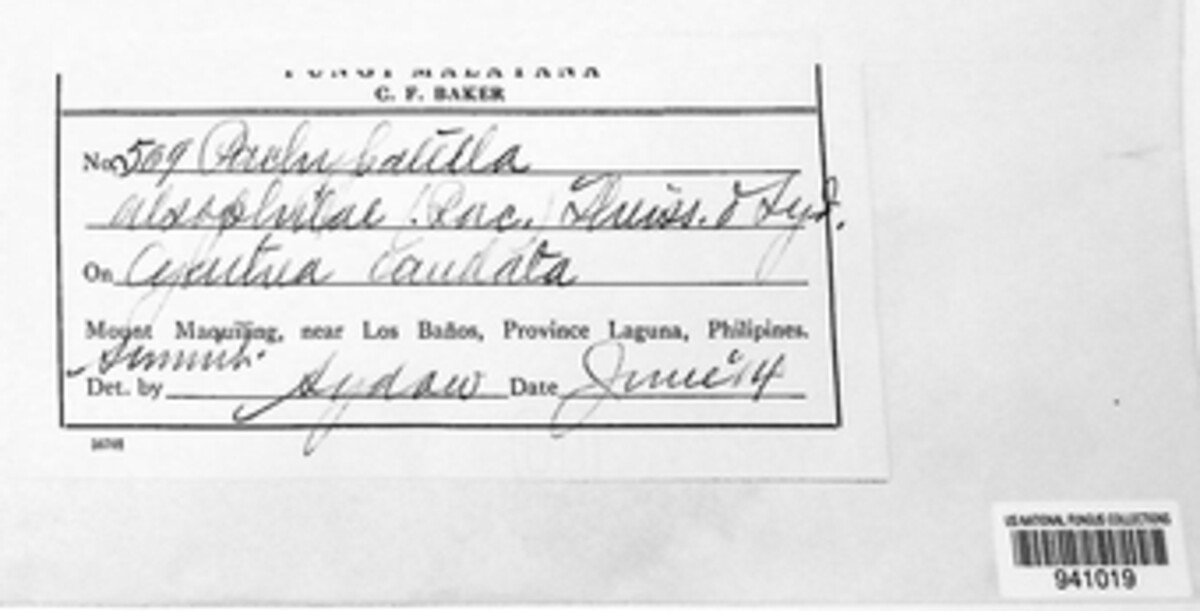 FUNGI MALAYANA
C. F. BAKER
No. 2509 Pachy
alsophilae (Rac.) Theiss. & Syd.
On Cyathea caudata
Mount Maquiling, near Los Baños, Province Laguna, Philipines.
Summit.
Det. by Sydow Date June '14
US NATIONAL FUNGUS COLLECTIONS
941019